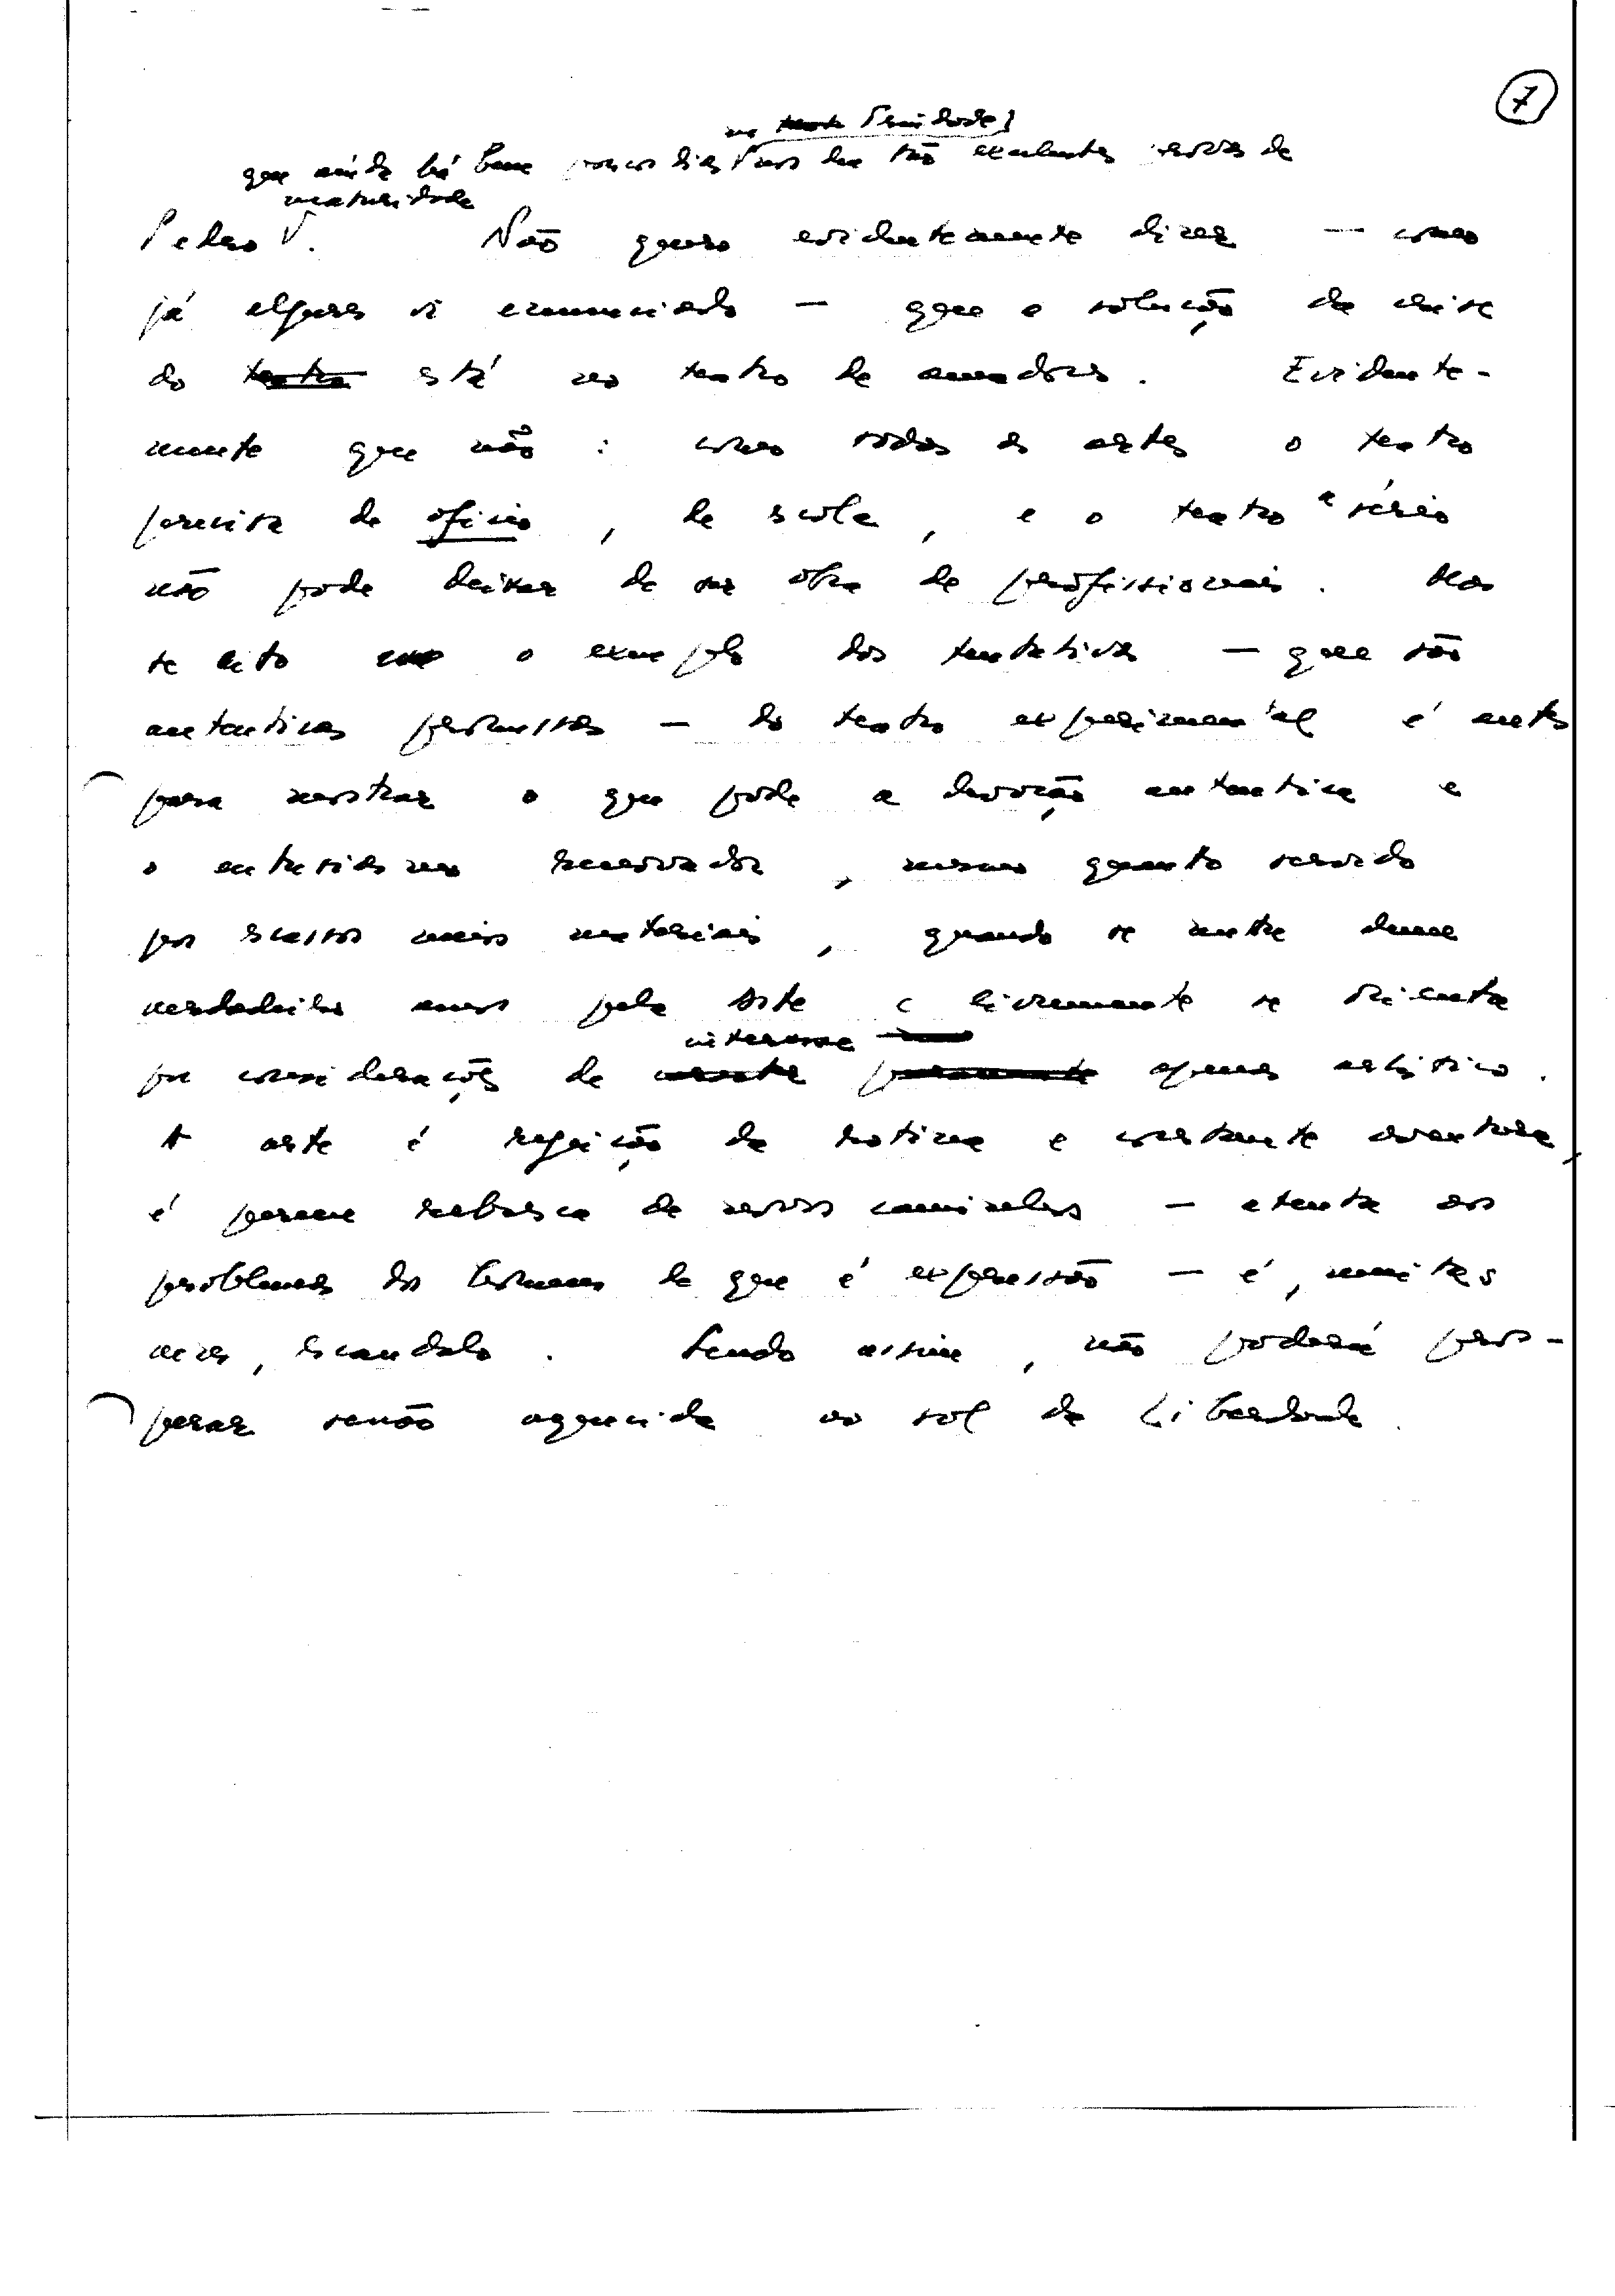 7
na Trindade
que ainda há bem poucos dias nos deu tão excelentes provas de
maturidade
Pedro V. Não quero evidentemente dizer — como
já algures vi enunciado — que a solução da crise
do teatro está no teatro de amadores. Evidente-
mente que não: como todas as artes o teatro
precisa de ofício, de escola, e o teatro a sério
não pode deixar de ser obra de profissionais. Mas
se cito o exemplo das tentativas — que são
autenticas promessas — do teatro experimental é antes
para mostrar o que pode a devoção autentica e
o entusiasmo renovador, mesmo quando servido
por escassos meios materiais, quando se nutre dum
verdadeiro amor pela Arte e livremente se orienta
interesse
por considerações de apenas artístico.
A arte é rejeição da rotina e constante aventura,
é perene rebusca de novos caminhos — atenta aos
problemas do homem de que é expressão — é, muitas
vezes, escandalo. Sendo assim, não poderá pros-
perar senão aquecida ao sol da Liberdade.